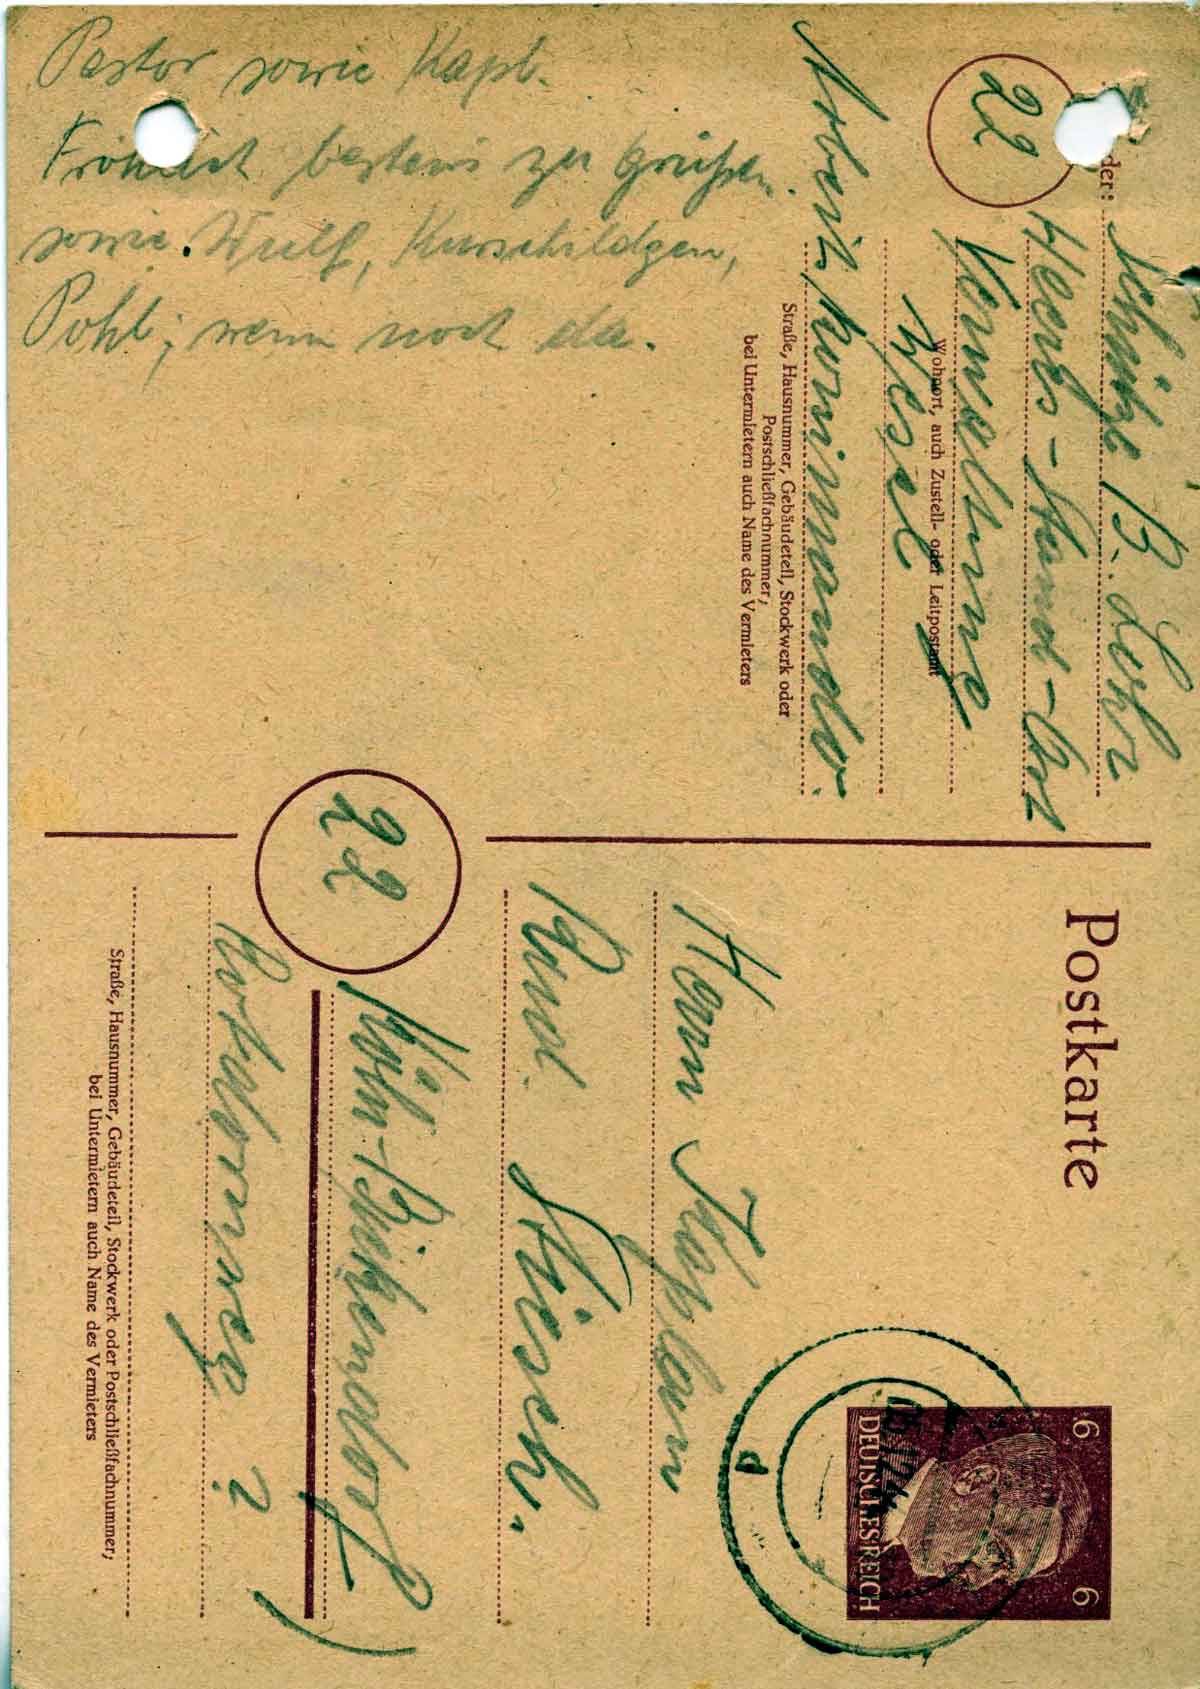 Pastor sowie Kapl.
Fröhlich bestens zu grüßen
sowie Wulf, Kurschildgen,
Pohl, wenn noch da.
der: Schütze B. Lehr
Heeres-Stand-Ort
22 Verwaltung
Wesel
Wohnort, auch Zustell- oder Leitpostamt
Arbeitskommando.
Straße, Hausnummer, Gebäudeteil, Stockwerk oder
Postschließfachnummer;
bei Untermietern auch Name des Vermieters
Postkarte
6 6
DEUTSCHES REICH
d
Herrn Kaplan
Rud. Stiesch,
22 Köln-Bickendorf
Rochusweg 2
Straße, Hausnummer, Gebäudeteil, Stockwerk oder Postschließfachnummer;
bei Untermietern auch Name des Vermieters